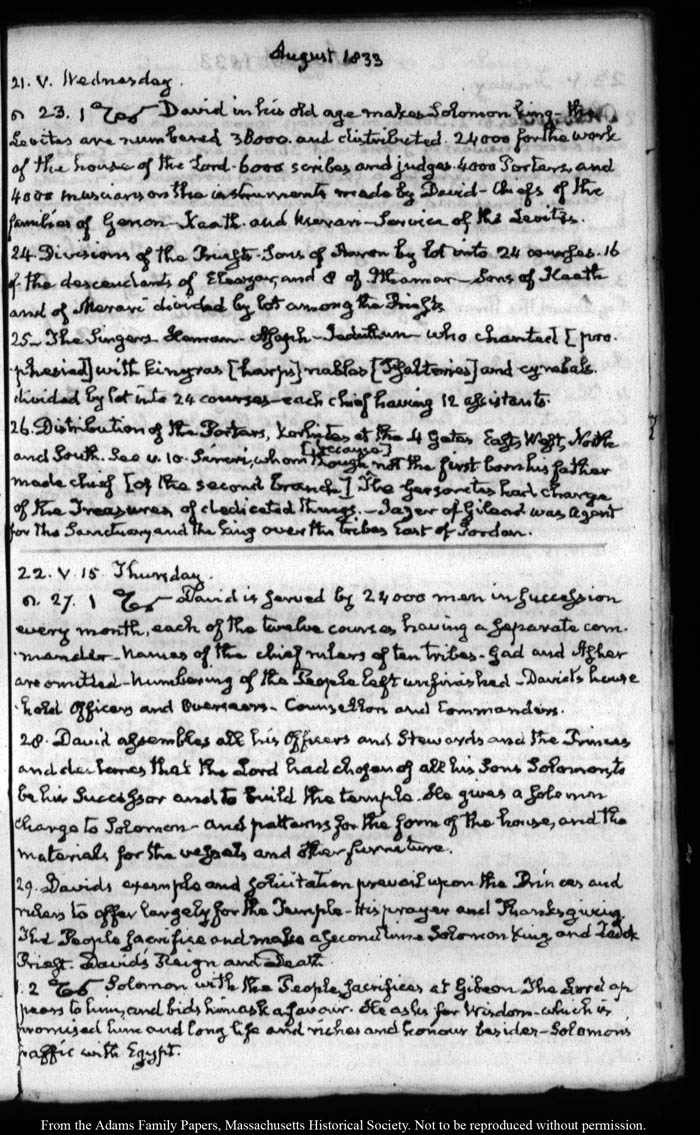 August 1833
21. V. Wednesday.
23. 1 David in his old age makes Solomon king - the
Levites are numbered 38000. and distributed. 24000 for the work
of the house of the Lord - 6000 scribes and judges. 4000 Porters, and
4000 musicians on the instruments made by David - Chiefs of the
families of Gerson - Kaath. and Merari - Service of the Levites.
24. Divisions of the Priests - Sons of Aaron by lot into 24 courses. 16
of the descendants of Eleazar, and 8 of Ithamar - Sons of Kaath
and of Merari divided by lot among the Priests
25. The Singers - Heman - Asaph - Jeduthun - who chanted [pro-
phesied] with kinyras [harps] nablas [Psalteries] and cymbals.
divided by lot into 24 courses - each chief having 12 assistants.
26. Distribution of the Porters, Korhites at the 4 Gates East, West, North
and South. See v. 10. Simri, whom [because] though not the first born his father
made chief [of the second branch] The Gersonites had charge
of the Treasures, of dedicated things. - Jazer of Gilead was Agent
for the Sanctuary and the king over the tribes East of Jordan.
22. V. 15 Thursday.
27. 1 David is served by 24000 men in succession
every month, each of the twelve courses having a separate com-
mander - Names of the chief rulers of ten tribes - Gad and Asher
are omitted - Numbering of the People left unfinished - David's house
hold Officers and Overseers - Counsellors and Commanders.
28. David assembles all his Officers and Stewards and the Princes
and declares that the Lord had chosen of all his Sons Solomon, to
be his Successor and to build the temple - He gives a solemn
charge to Solomon - and patterns for the form of the house, and the
materials for the vessels and other furniture.
29. Davids example and solicitation prevail upon the Princes and
rulers to offer largely for the Temple - His prayer and Thanksgiving
The People sacrifice and make a second time Solomon King and Zadok
Priest. David's Reign and Death
2 Solomon with the People, sacrifices at Gibeon. The Lord ap
pears to him, and bids him ask a favour. He asks for Wisdom - which is
promised him and long life and riches and honour besides - Solomon's
traffic with Egypt.
From the Adams Family Papers, Massachusetts Historical Society. Not to be reproduced without permission.